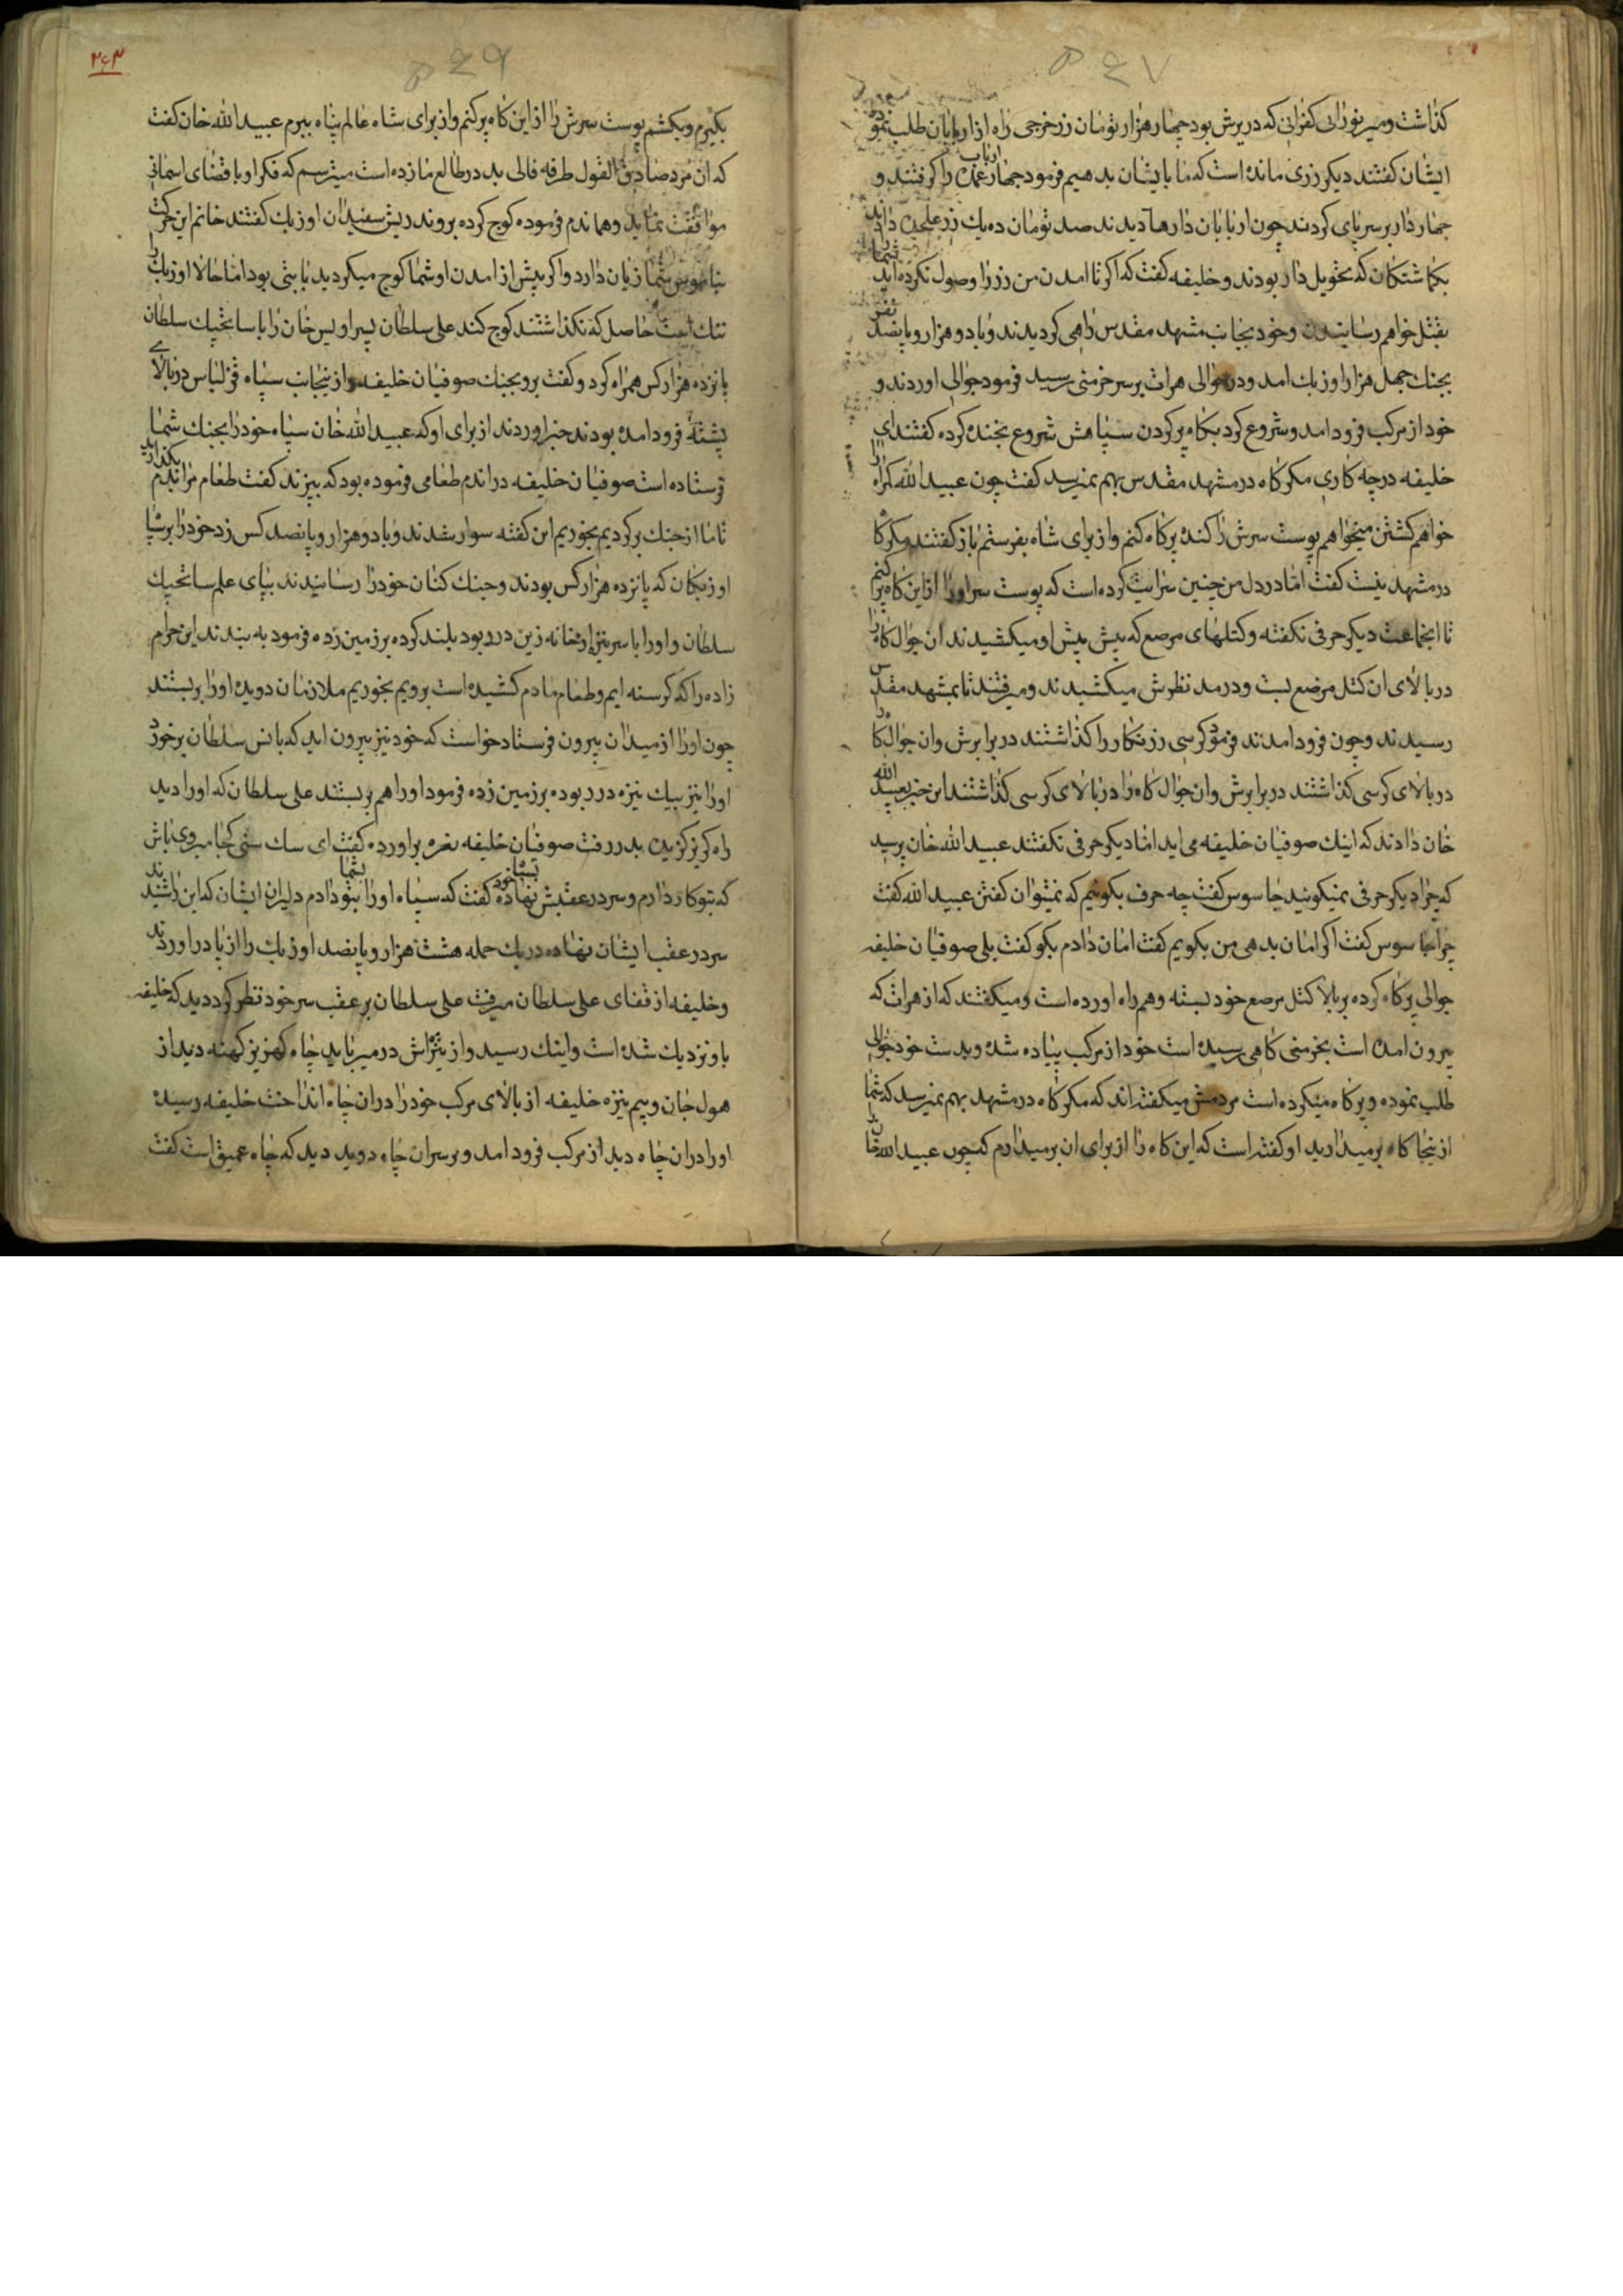 ۵۶۷
كذاشت و ميرنورالى كفرانى كه در پرش بود چهار هزار تومان زر خرجى راه از اربابان طلب نموده
ايشان كفتند ديكر زرى مانده است كه ما بايشان بدهيم فرمود چهار ارباب عمده را كرفتند و
چهار دار بر سر پاى كردند چون اربابان دارها ديدند صد تومان ده يك زر على دادند
بكماشتكان كه تحويل دار بودند و خليفه كفت كه اكر تا امدن من زر را وصول نكرده ايد شما را
بقتل خواهم رسانيدن و خود بجانب مشهد مقدس راهى كرديدند و با دو هزار و پانصد نفر
بجنك چهل هزار اوزبك امد و در حوالى هرات بر سر خرمنى رسيد فرمود جوالى اوردند و
خود از مركب فرود امد و شروع كرد بكاه پر كردن سپاهش شروع بخنده كرده كفتند اى
خليفه در چه كارى مكر كاه در مشهد مقدس بهم نميرسد كفت چون عبيد الله را كه
خواهم كشتن ميخواهم پوست سرش را كنده پر كاه كنم و از براى شاه بفرستم باز كفتند مكر كاه
در مشهد نيست كفت اما در دل من چنين سرايت كرده است كه پوست سر او را از اين كاه پر كنم
تا ايجماعت ديكر حرفى نكفته و كتلهاى مرصع كه پيش پيش او ميكشيدند ان جوال كاه را
در بالاى ان كتل مرصع بست و در مد نظرش ميكشيدند و ميرفتند تا بمشهد مقدس
رسيدند و چون فرود امدند فرمود كرسى زرنكار را كذاشتند در برابرش و ان جوال كاه را
در بالاى كرسى كذاشتند در برابرش و ان جوال كاه را در بالاى كرسى كذاشتند اين خبر بعبيد الله
خان دادند كه اينك صوفيان خليفه مى ايد اما ديكر حرفى نكفتند عبيد الله خان پرسيد
كه چرا ديكر حرفى نميكوئيد جاسوس كفت چه حرف بكوئيم كه نميتوان كفتن عبيد الله كفت
چرا جاسوس كفت اكر امان بدهى من بكويم كفت امان دادم بكو كفت بلى صوفيان خليفه
جوالى پر كاه كرده بر بالا كتل مرصع خود بسته و همراه اورده است و ميكفتند كه از هرات كه
بيرون امده است بخرمنى كاهى رسيده است خود از مركب پياده شده و بدست خود جوالى
طلب نموده و پر كاه ميكرده است مردمش ميكفته اند كه مكر كاه در مشهد بهم نميرسد كه شما
از ينجا كاه برميداريد او كفته است كه اين كاه را از براى ان برميدارم كه چون عبيد الله خان را
۲۶۳
۵۶۹
بكيرم و بكشم پوست سرش را از اين كاه پر كنم و از براى شاه عالم پناه ببرم عبيد الله خان كفت
كه ان مرد صادق القول طرفه فالى بد در طالع ما زده است ميترسم كه فكر او با قضاى اسمانى
موافقت نمايد و هماندم فرموده كوچ كرده بروند ريش سفيدان اوزبك كفتند خانم اين حركت
بناموس شما زيان دارد و اكر پيش از امدن او شما كوچ ميكرديد يا بنى بود اما حالا اوزبك را
ننك است حاصل كه نكذاشتند كوچ كند على سلطان پسر اويس خان را با سانجيك سلطان
پانزده هزار كس همراه كرد و كفت برو بجنك صوفيان خليفه و از ينجانب سپاه قزلباس در بالاى
پشته فرود امده بودند خبر اوردند از براى او كه عبيد الله خان سپاه خود را بجنك شما
فرستاده است صوفيان خليفه در اندم طعامى فرموده بود كه بپزند كفت طعام مرا بكذاريد
تا ما از جنك بركرديم بخوريم اين كفته سوار شدند و با دو هزار و پانصد كس زد خود را بر سپاه
اوزبكان كه پانزده هزار كس بودند و جنك كنان خود را رسانيدند بپاى علم سانجيك
سلطان و او را با سر نيزه از خانه زين در ربود بلند كرده بر زمين زده فرمود به بندند اين حرام
زاده را كه كرسنه ايم و طعام ما دم كشيده است برويم بخوريم ملازمان دويده او را بر بستند
چون او را از ميدان بيرون فرستاد خواست كه خود نيز بيرون ايد كه يانس سلطان برخورد
او را نيز بيك نيزه در ربوده بر زمين زده فرمود او را هم بر بستند على سلطان كه او را ديد
راه كريز كزيده بدر رفت صوفيان خليفه نعره براورده كفت اى سك سنى كجا ميروى باش
كه بتو كار دارم و سر در عقبش نهاده بسپاه خود كفت كه سپاه او را بشما دادم دليران ايشان كه اين را شنيدند
سر در عقب ايشان نهاده در يك حمله هشت هزار و پانصد اوزبك را از پا در اوردند
و خليفه از قفاى على سلطان ميرفت على سلطان بر عقب سر خود نظر كرد ديد كه خليفه
باو نزديك شده است و اينك رسيد و از نيزه اش در ميربايد چاه كهريز كهنه ديد از
هول جان و بيم نيزه خليفه از بالاى مركب خود را در ان چاه انداخت خليفه رسيده
او را در ان چاه ديد از مركب فرود امد و بر سر ان چاه دويد ديد كه چاه عميق است كفت